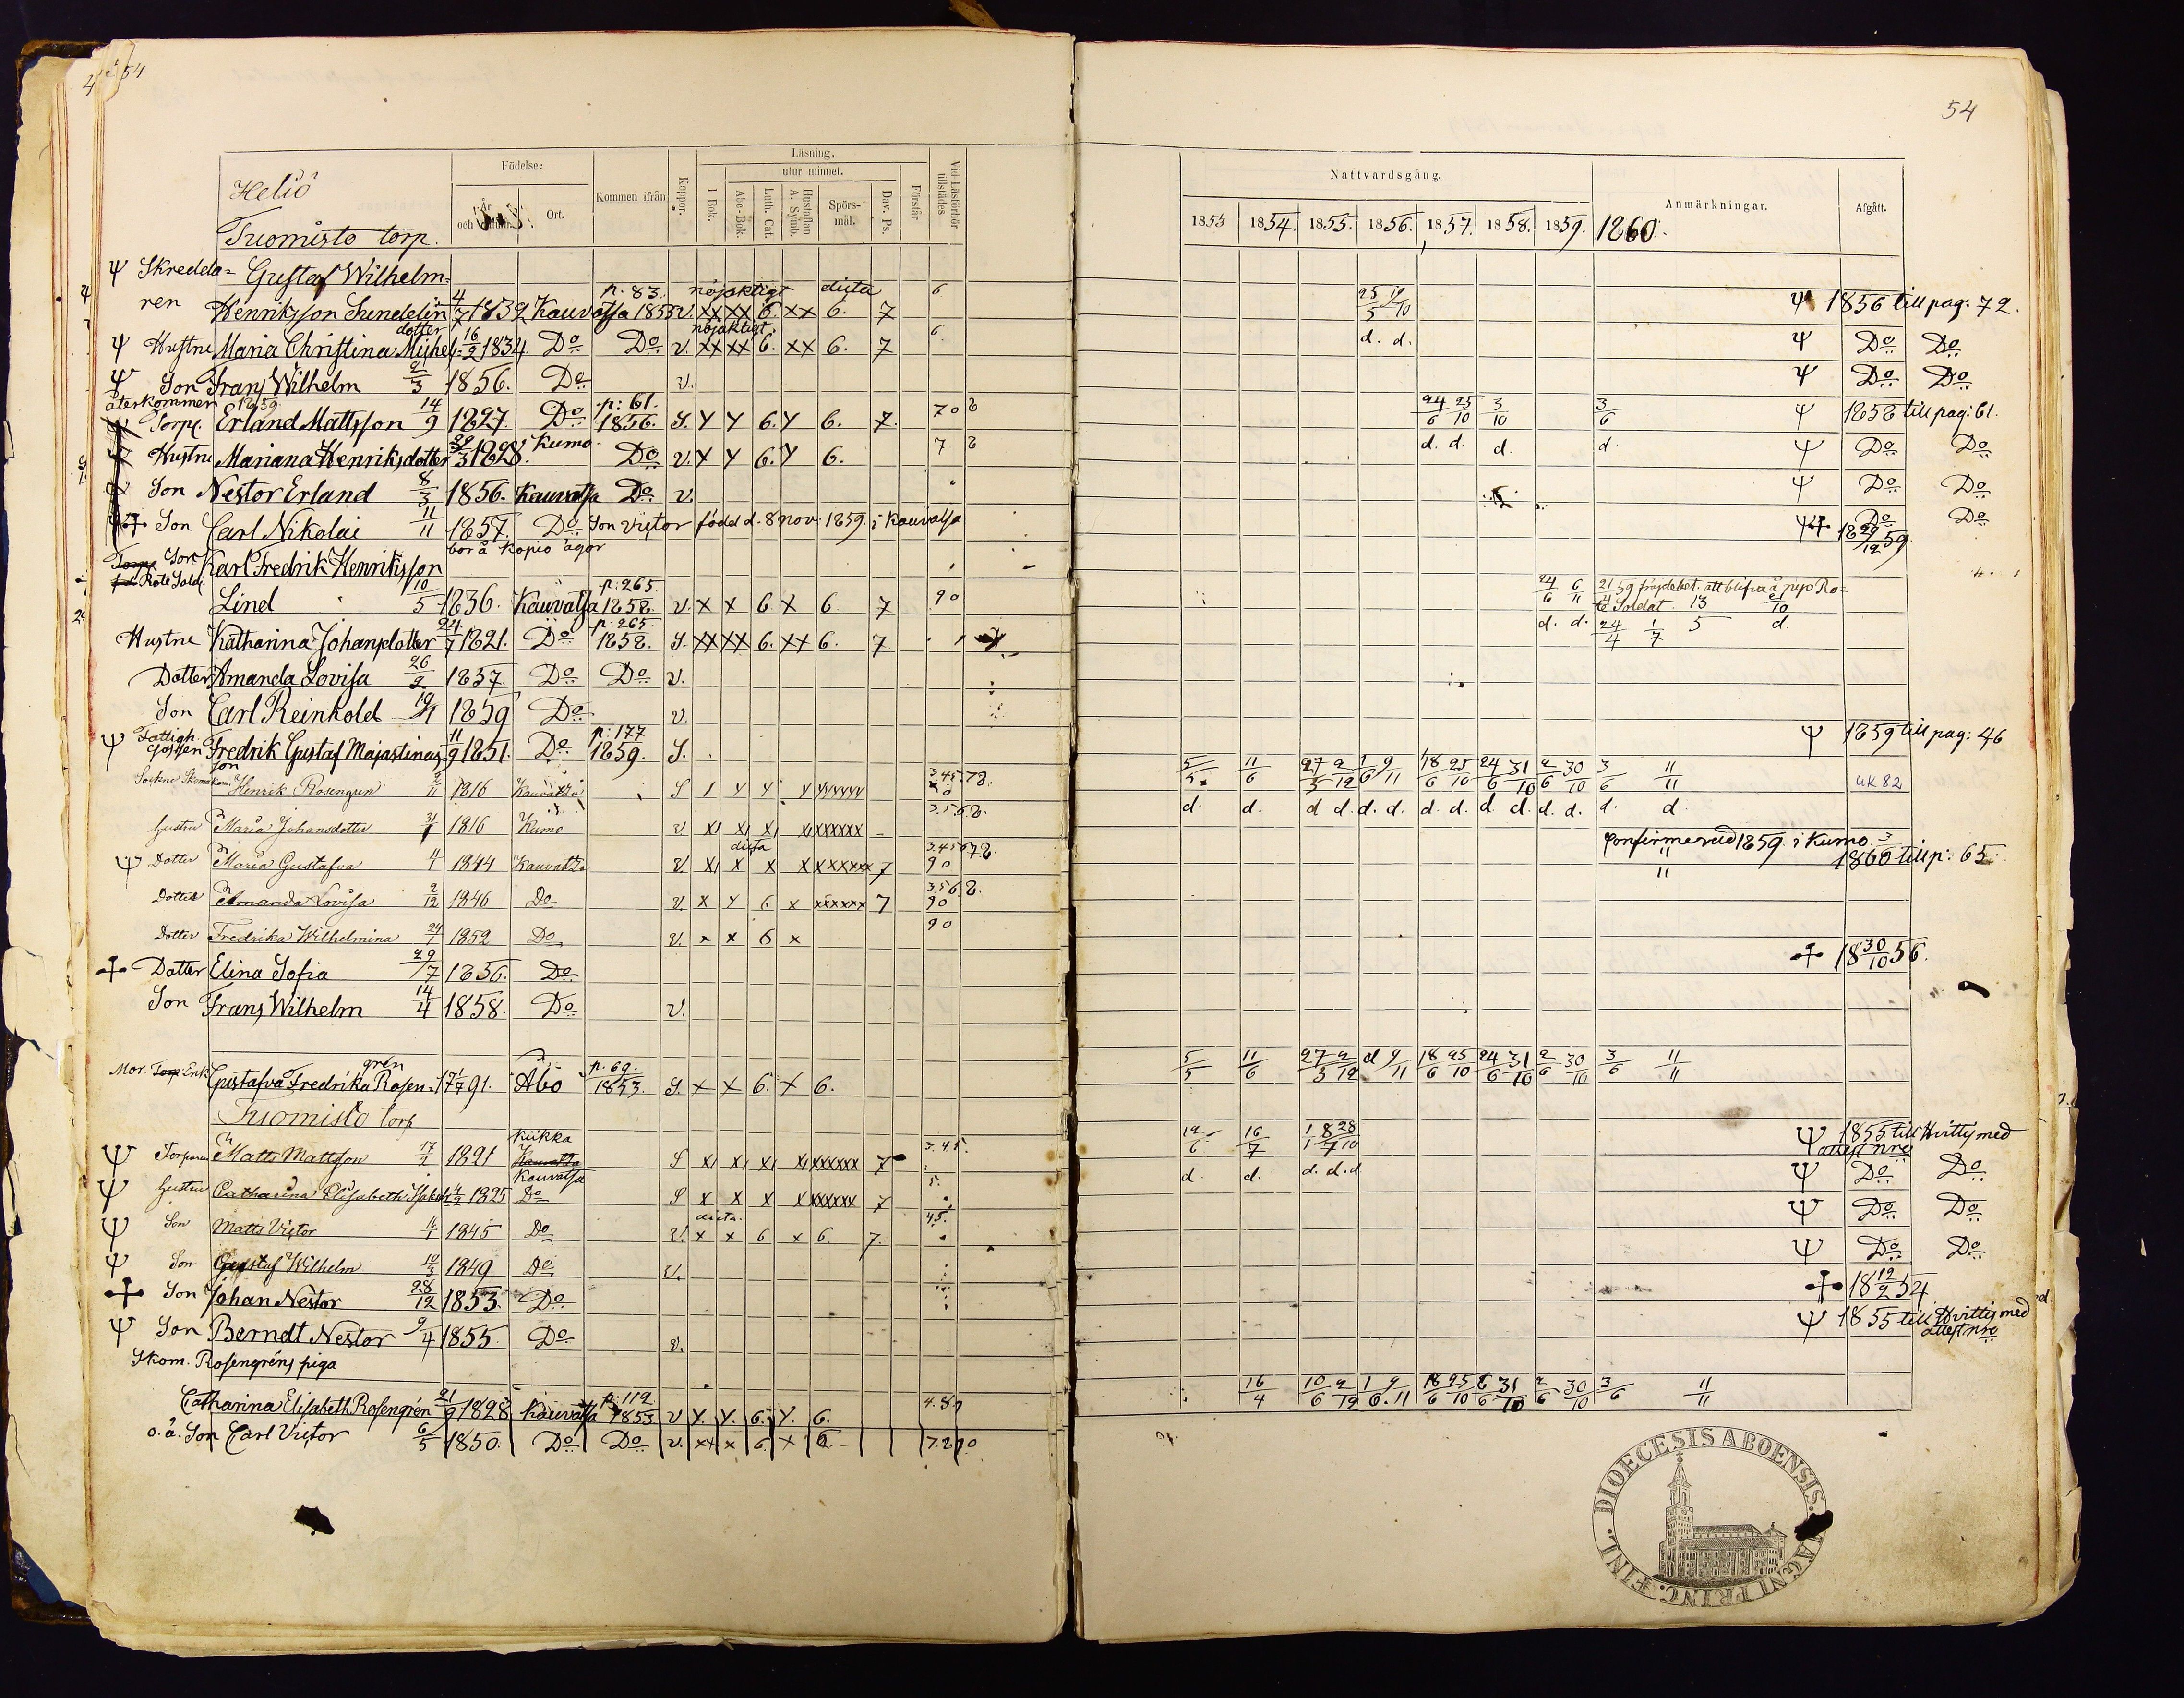 54
54
Heliö
Tuomisto torp.
Födelse:
År och Datum.
Ort.
Kommen ifrån
Koppor.
Läsning.
utur minnet.
I Bok.
Abc-Bok.
Luth. Cat.
Hustaflan A. Symb.
Spörs-mål.
Dav. Ps.
Förstår
Vid Läsförhör tillstädes
Nattvardsgång.
1853 1854. 1855. 1856. 1857. 1858. 1859. 1860.
Anmärkningar.
Afgått.
Ψ Skredda= Gustaf Wilhelm
ren Henriksson Sundelin 4/7 1832 Kauvatsa p. 83. 1855 v. nöjaktigt dicta xx xx 6. xx 6. 7 6 25/5 19/10 Ψ 1856 till pag: 72.
Ψ Hustru Maria Christina Mickels= dotter 16/2 1834. Do Do v. nöjaktigt. xx xx 6. xx 6. 7 6 d. d. Ψ Do Do
Ψ Son Frans Wilhelm 21/3 1856. Do v. Ψ Do Do
återkommen 1859
Torp. Erland Mattsson 14/9 1827. Do p: 61. 1856. S. Y Y 6. Y 6. 7. 70 8 24/6 25/10 3/10 3/6 Ψ 1858 till pag: 61.
Hustru Mariana Henriksdotter 1828. Kumo Do v. Y Y 6. Y 6. 7 8 d. d. d. d. Ψ Do Do
Son Nestor Erland 8/3 1856. Kauvatsa Do v. Ψ Do Do
Son Carl Nikolai 11/11 1857. Do Son Victor född d. 8 nov: 1859. i Kauvatsa Ψ Do Do
bor å Kopio ägor 18 29/12 59.
Karl Fredrik Henriksson
Rote Sold. Lind 10/5 1836. Kauvatsa p: 265. 1858. v. x x 6. x 6 7 90 24/6 6/11 21/4 59 frejdebet. att blifva å nyo Ro=
te Soldat. 13/5 21/10
Hustru Katharina Johansdotter 24/7 1821. Do p: 265. 1858. S. xx xx 6. xx 6. 7 d. d. 24/4 1/7 d.
Dotter Amanda Lovisa 26/2 1857. Do Do v.
Son Carl Reinhold 1859 Do v.
Ψ Fattigh. gossen Fredrik Gustaf Majastinas son 11/9 1851. Do p: 177 1859. S. Ψ 1859 till pag: 46
Sockne Skomakaren Henrik Rosengren 2/11 1816 Kauvatsa S 3.4.5.7.8. 5/5 11/6 27/5 2/12 1/6 9/11 18/6 25/10 24/6 31/10 2/6 30/10 3/6 11/11 UK 82
Hustru Maria Johansdotter 1816 Kumo v 3.5.6.8. d. d. d. d. d. d. d. d. d. d. d. d. d. d.
Ψ Dotter Maria Gustafva 1844 Kauvatsa v. dicta 7 90 Confirmerad 1859. i Kumo. 1860 till p: 65.
Dotter Amanda Lovisa 2/12 1846 Do v. x Y 6 x xxxxxx 7 3.5.6.8. 90
Dotter Fredrika Wilhelmina 24/1 1852 Do v. x x 6 x 90
Dotter Elina Sofia 29/7 1856. Do 18 30/10 56.
Son Frans Wilhelm 14/4 1858. Do v.
Mor. Enk. Gustafva Fredrika Rosen= gren 1791. Åbo p. 69. 1853. S. x x 6. x 6. 5/5 11/6 27/5 2/12 d 9/11 18/6 25/10 24/6 31/10 2/6 30/10 3/6 11/11
Tuomisto torp
Ψ Torparen Matts Mattson 17/2 1821 Kiikka S 7 3.4.5. 16/7 1/1 8/7 28/10 Ψ 1855 till Hvittis med attest nro
Ψ Hustru Catharina Elisabeth Isaks 1825 Kauvatsa Do S x x x x xxxxxx 7 5. d. d. d. d. d Ψ Do Do
Ψ Son Matts Victor 1845 Do v. dicta. x x 6 x 6. 7. 4.5. Ψ Do Do
Ψ Son Gustaf Wilhelm 10/3 1849 Do v. Ψ Do Do
Son Johan Nestor 28/12 1853. Do 18 12/2 54.
Ψ Son Berndt Nestor 9/4 1855. Do v. Ψ 1855 till Hvittis med attest nro
Skom. Rosengréns piga
Catharina Elisabeth Rosengrén 21/9 1828 Kauvatsa p: 112. 1853. v Y. Y. 6. Y. 6. 4.8. 16/4 10/6 2/12 1/6. 9/11 18/6 25/10 31/10 2/6 30/10 3/6 11/11
o. ä. Son Carl Victor 6/5 1850. Do Do v. xx x 6. x 6. 7.8.90
DIOECESIS ABOENSIS. MAGNI PRINC. FINL.